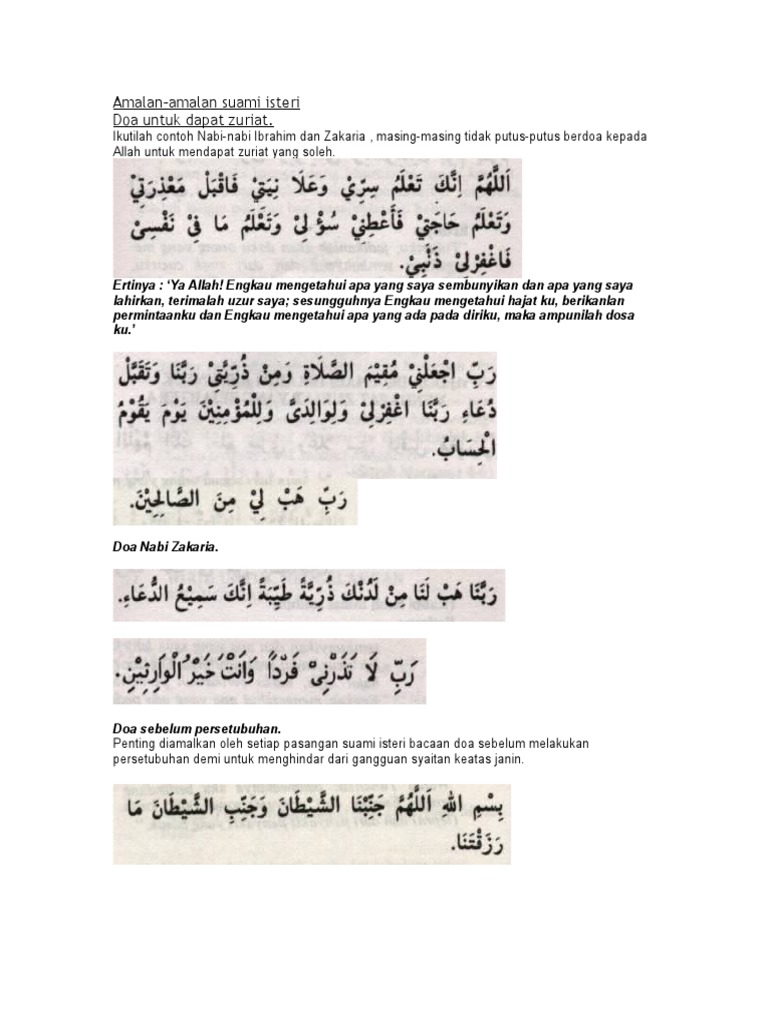 Amalan-amalan suami isteri
Doa untuk dapat zuriat.
Ikutilah contoh Nabi-nabi Ibrahim dan Zakaria , masing-masing tidak putus-putus berdoa kepada
Allah untuk mendapat zuriat yang soleh.
اَللَّهُمَّ اِنَّكَ تَعْلَمُ سِرِّيْ وَعَلَا نِيَتِيْ فَاقْبَلْ مَعْذِرَتِيْ
وَتَعْلَمُ حَاجَتِيْ فَأَعْطِنِيْ سُؤْلِىْ وَتَعْلَمُ مَا فِىْ نَفْسِىْ
فَاغْفِرْلِىْ ذَنْبِيْ.
Ertinya : ‘Ya Allah! Engkau mengetahui apa yang saya sembunyikan dan apa yang saya
lahirkan, terimalah uzur saya; sesungguhnya Engkau mengetahui hajat ku, berikanlan
permintaanku dan Engkau mengetahui apa yang ada pada diriku, maka ampunilah dosa
ku.’
رَبِّ اجْعَلْنِيْ مُقِيْمَ الصَّلَاةِ وَمِنْ ذُرِّيَّتِيْ رَبَّنَا وَتَقَبَّلْ
دُعَاءِ رَبَّنَا اغْفِرْلِىْ وَلِوَالِدَىَّ وَلِلْمُؤْمِنِيْنَ يَوْمَ يَقُوْمُ
الْحِسَابُ.
رَبِّ هَبْ لِيْ مِنَ الصَّالِحِيْنَ.
Doa Nabi Zakaria.
رَبَّنَا هَبْ لَنَا مِنْ لَدُنْكَ ذُرِّيَّةً طَيِّبَةً اِنَّكَ سَمِيْعُ الدُّعَاءِ.
رَبِّ لَا تَذَرْنِىْ فَرْدًا وَاَنْتَ خَيْرُ الْوَارِثِيْنَ.
Doa sebelum persetubuhan.
Penting diamalkan oleh setiap pasangan suami isteri bacaan doa sebelum melakukan
persetubuhan demi untuk menghindar dari gangguan syaitan keatas janin.
بِسْمِ اللهِ اَللَّهُمَّ جَنِّبْنَا الشَّيْطَانَ وَجَنِّبِ الشَّيْطَانَ مَا
رَزَقْتَنَا.